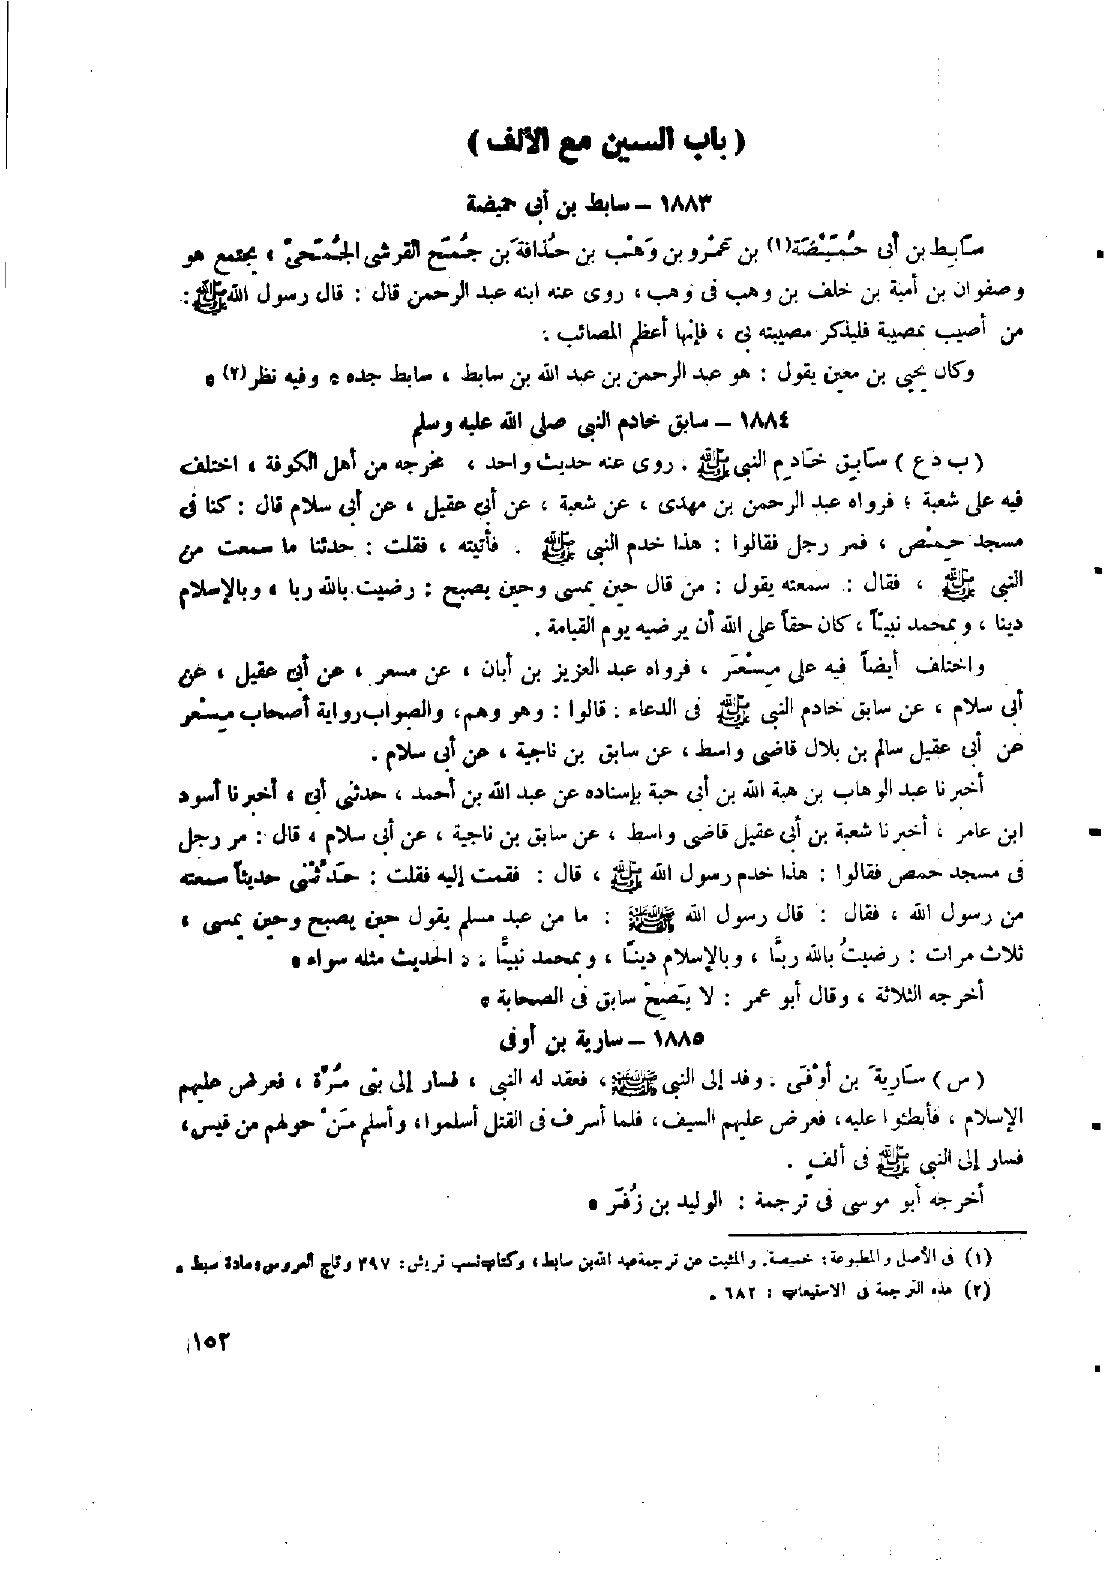 ( باب السين مع الألف )
١٨٨٣ – سابط بن أبى حميضة
سَابِط بن أبى حُمَيْضَة(١) بن عَمْرو بن وَهْب بن حُذَافَة بن جُمَح القرشى الجُمَحىّ ، يجتمع هو
وصفوان بن أمية بن خلف بن وهب فى وهب ، روى عنه ابنه عبد الرحمن قال : قال رسول الله ﷺ :
من أصيب بمصيبة فليذكر مصيبته بى ، فإنها أعظم المصائب .
وكان يحيى بن معين يقول : هو عبد الرحمن بن عبد الله بن سابط ، سابط جده . وفيه نظر(٢) .
١٨٨٤ – سابق خادم النبى صلى الله عليه وسلم
( ب د ع ) سَابِق خَادِم النبى ﷺ . روى عنه حديث واحد ، مخرجه من أهل الكوفة ، اختلف
فيه على شعبة ؛ فرواه عبد الرحمن بن مهدى ، عن شعبة ، عن أبى عقيل ، عن أبى سلام قال : كنا فى
مسجد حِمْص ، فمر رجل فقالوا : هذا خدم النبى ﷺ . فأتيته ، فقلت : حدثنا ما سمعت من
النبى ﷺ ، فقال : سمعته يقول : من قال حين يمسى وحين يصبح : رضيت بالله ربا ، وبالإسلام
دينا ، وبمحمد نبيّاً ، كان حقاً على الله أن يرضيه يوم القيامة .
واختلف أيضاً فيه على مِسْعَر ، فرواه عبد العزيز بن أبان ، عن مسعر ، عن أبى عقيل ، عن
أبى سلام ، عن سابق خادم النبى ﷺ فى الدعاء . قالوا : وهو وهم ، والصواب رواية أصحاب مِسْعر
عن أبى عقيل سالم بن بلال قاضى واسط ، عن سابق بن ناجية ، عن أبى سلام .
أخبرنا عبد الوهاب بن هبة الله بن أبى حبة بإسناده عن عبد الله بن أحمد ، حدثنى أبى ، أخبرنا أسود
ابن عامر ، أخبرنا شعبة بن أبى عقيل قاضى واسط ، عن سابق بن ناجية ، عن أبى سلام ، قال : مر رجل
فى مسجد حمص فقالوا : هذا خدم رسول الله ﷺ ، قال : فقمت إليه فقلت : حَدِّثْنى حديثاً سمعته
من رسول الله ، فقال : قال رسول الله ﷺ : ما من عبد مسلم يقول حين يصبح وحين يمسى ،
ثلاث مرات : رضيتُ بالله ربَّا ، وبالإسلام دينّا ، وبمحمد نبيَّا . : الحديث مثله سواء .
أخرجه الثلاثة ، وقال أبو عمر : لا يَصِحّ سابق فى الصحابة .
١٨٨٥ – سارية بن أوفى
( س ) سَارِيةَ بن أَوْفَى . وفد إلى النبى ﷺ ، فعقد له النبى ، فسار إلى بنى مُرَّة ، فعرض عليهم
الإسلام ، فأبطئوا عليه ، فعرض عليهم السيف ، فلما أسرف فى القتل أسلموا ، وأسلم مَنْ حولهم من قيس ،
فسار إلى النبى ﷺ فى ألفٍ .
أخرجه أبو موسى فى ترجمة : الوليد بن زُفَر .
(١) فى الأصل والمطبوعة : خميصة. والمثبت عن ترجمة عبد الله بن سابط ، وكتاب نسب قريش : ٣٩٧ وتاج العروس ، مادة سبط .
(٢) هذه الترجمة فى الاستيعاب : ٦٨٢ .
١٥٢